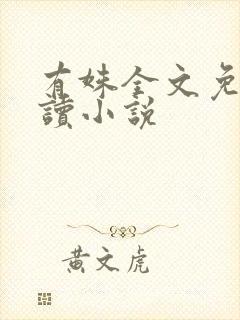 有姝全文免
讀小說
黃文虎